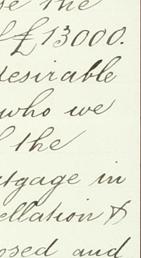 se the
£13000.
desirable
who we
the
tgage in
ellation &
osed and